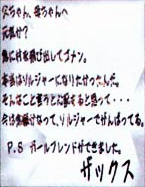 父ちゃん、母ちゃんへ
元気か?
急に村を飛び出してゴメン。
本当はソルジャーになりたかったんだ。
そんなこと言うと反対すると思って・・・
今は名前かえって、ソルジャーでがんばってる。
P.S ガールフレンドができました。
ザックス